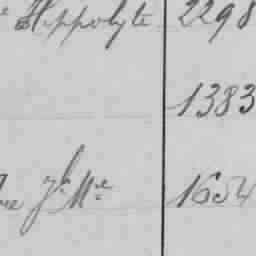 Hippolyte 2298
1383
Jh Me 1654